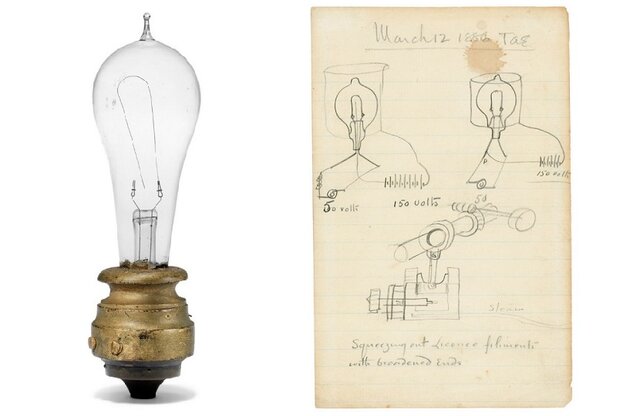 March 12 1886 TAE
50 volts 150 volts 50 150 volts
Steam
Squeezing out Licorice filiments
with broadened Ends.